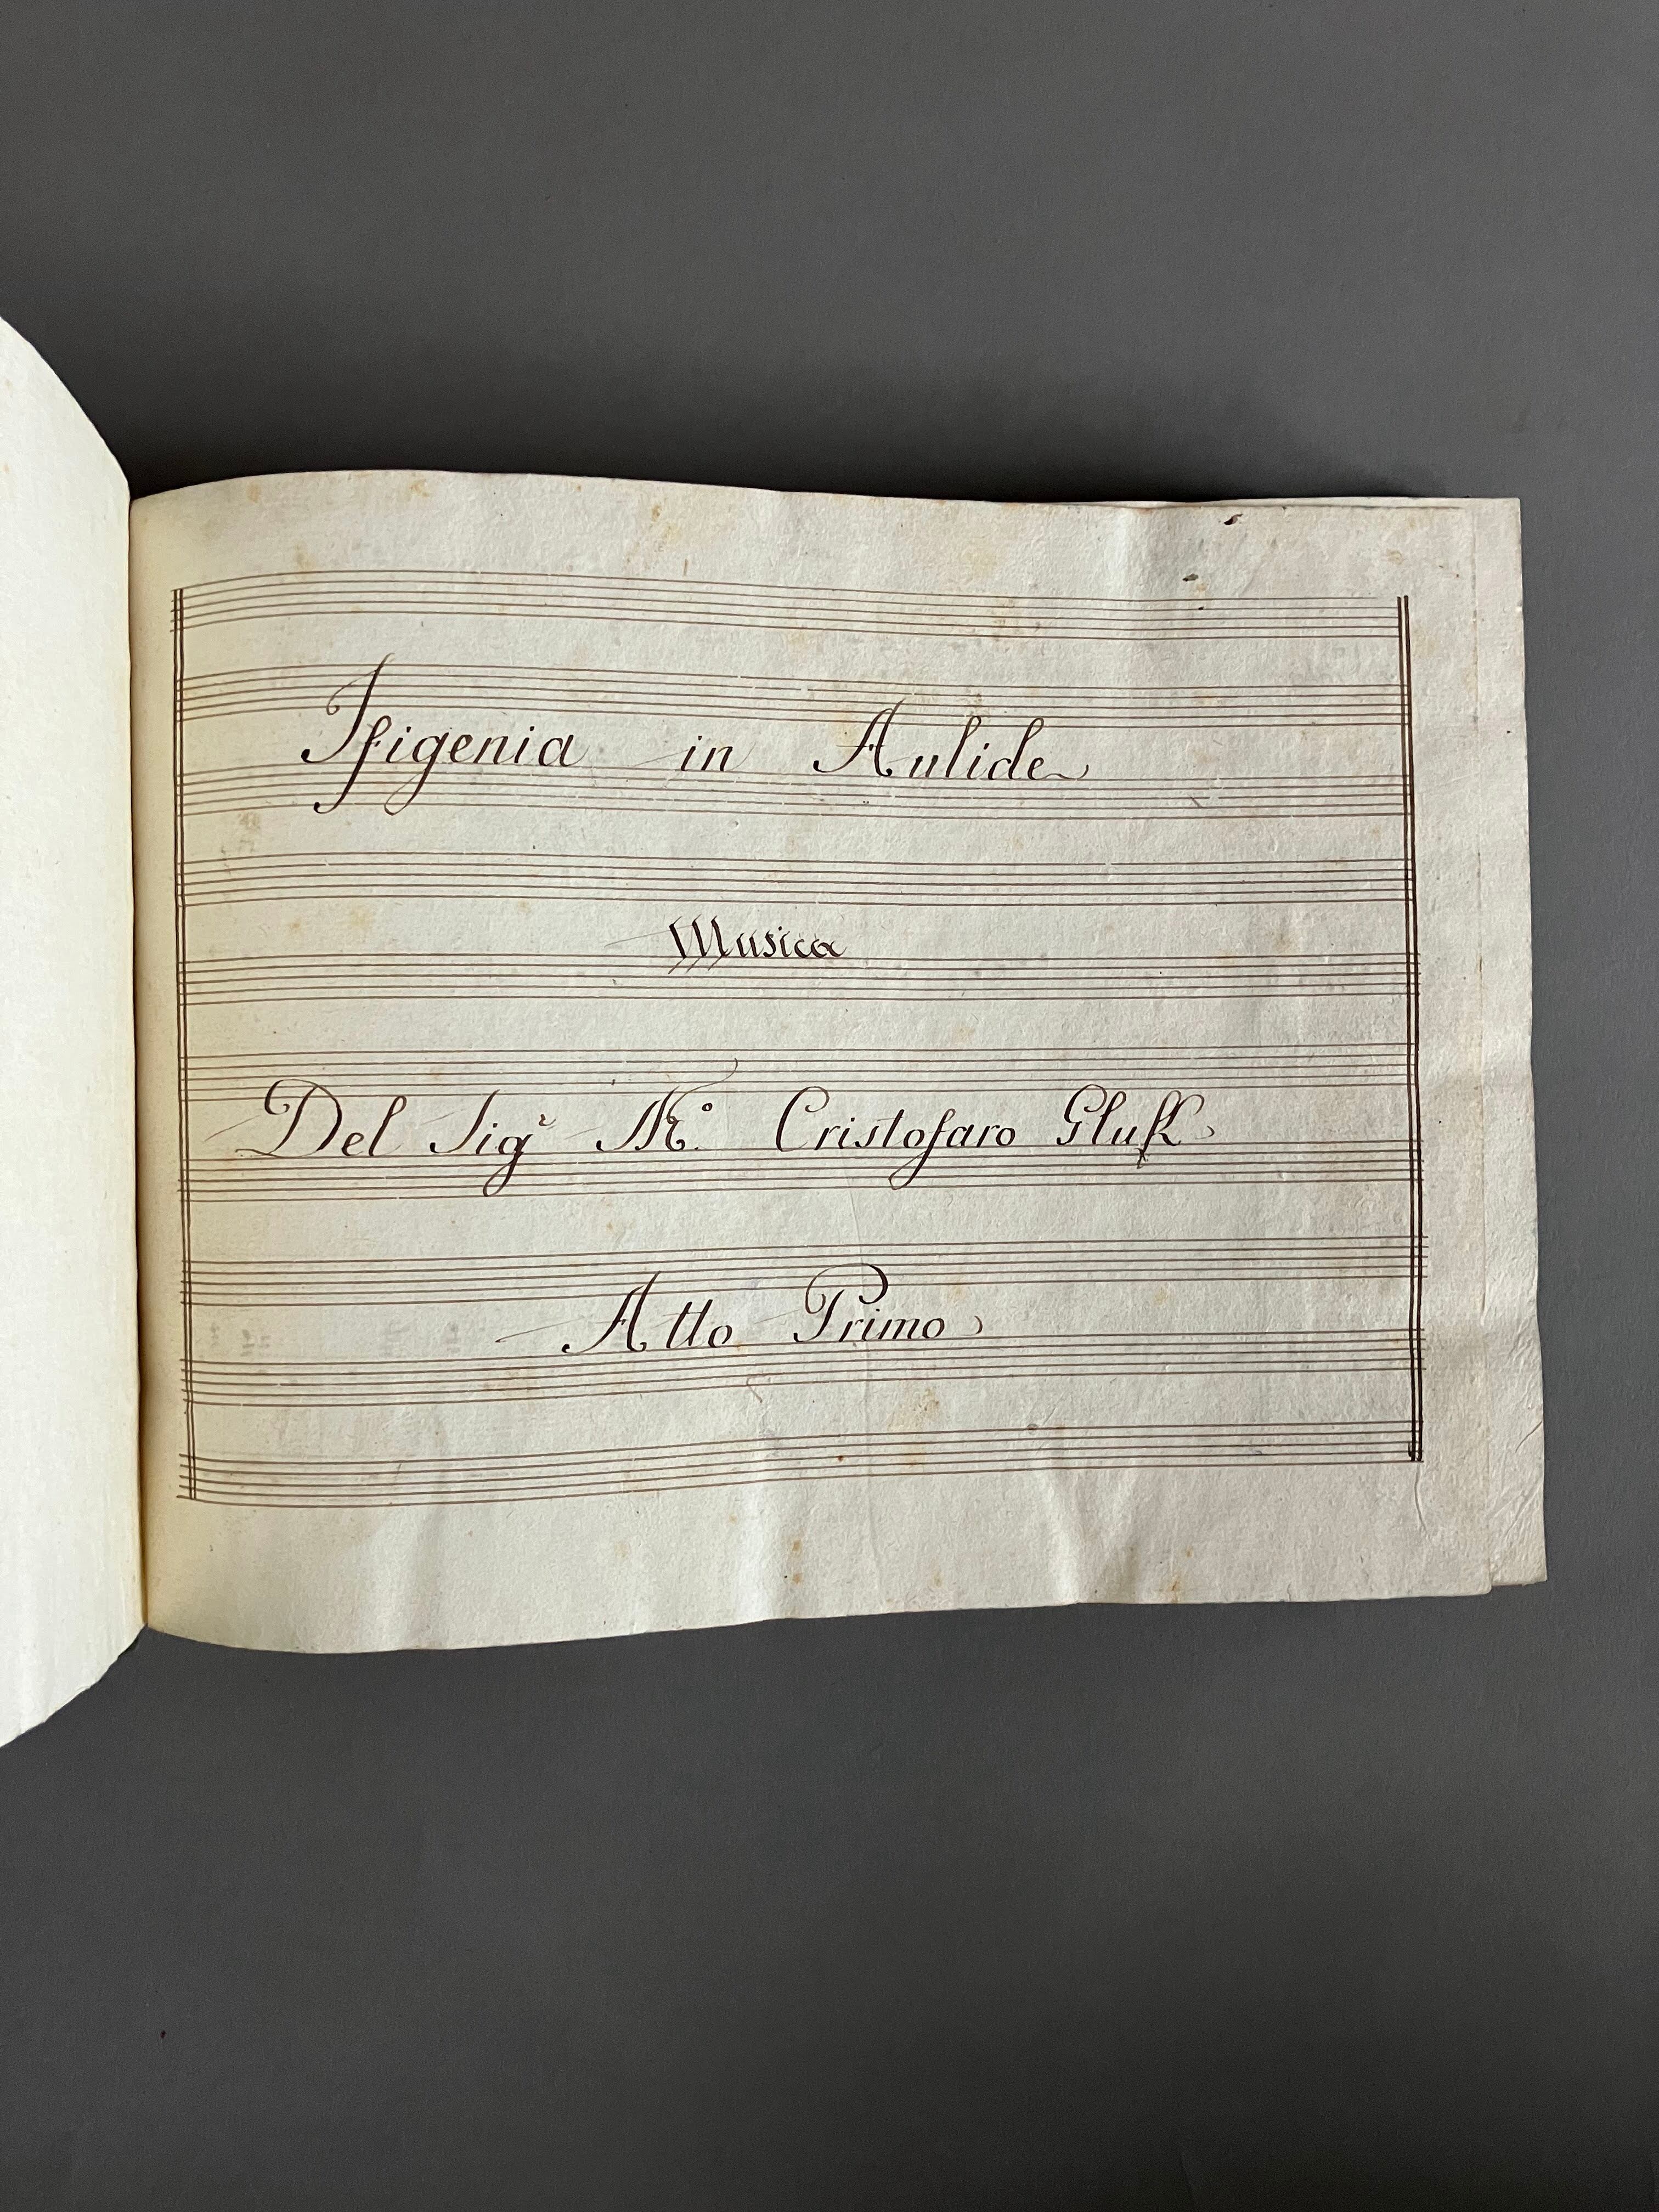 Ifigenia in Aulide
Musica
Del Sigr. Mo. Cristofaro Gluk
Atto Primo